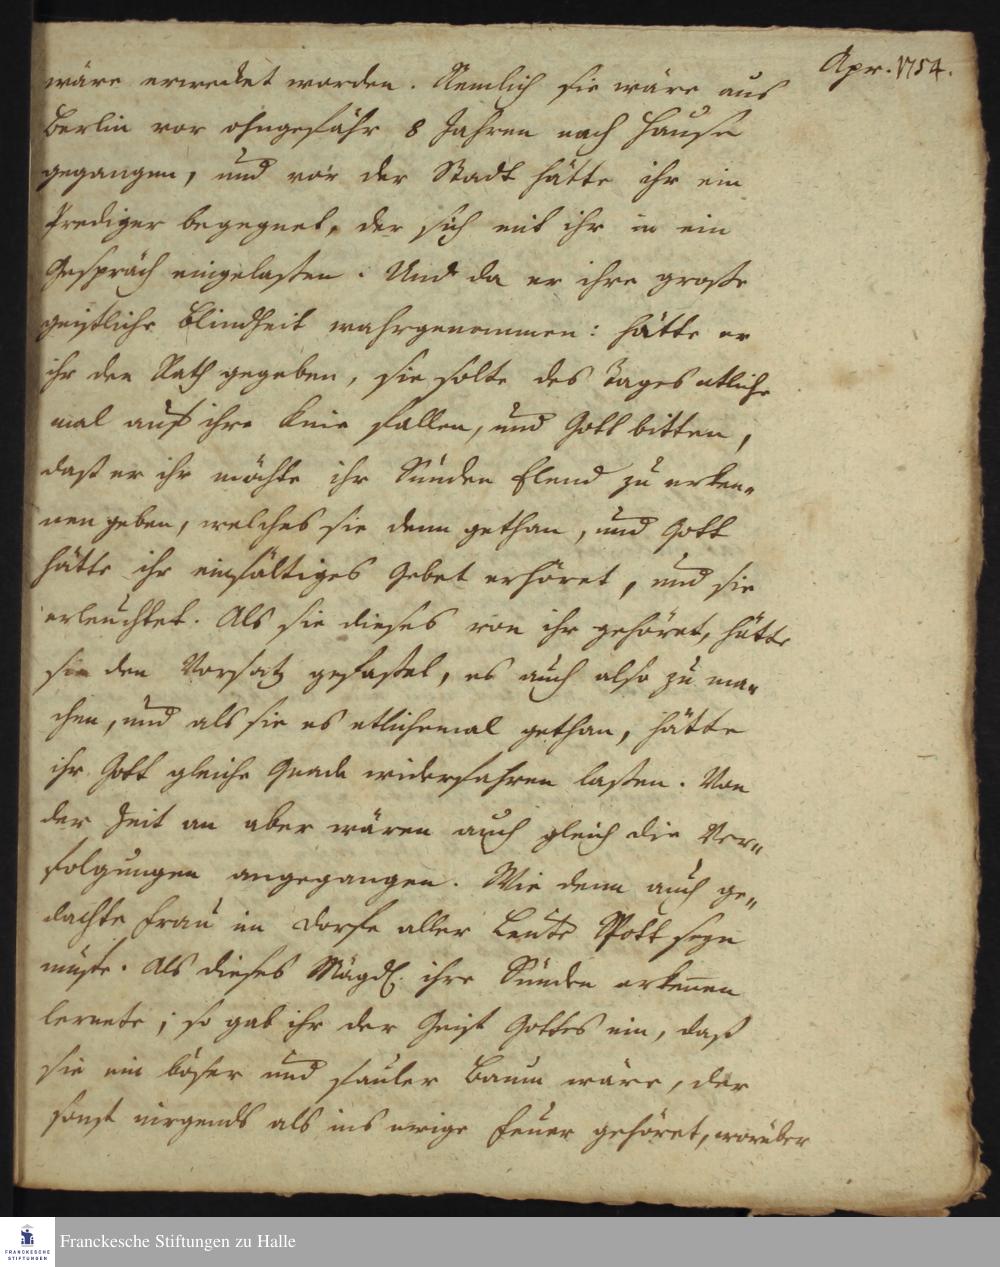 Apr. 1754.
wäre erwecket worden. Nemlich sie wäre aus
Berlin vor ohngefähr 8 Jahren nach Hause
gegangen, und vor der Stadt hätte ihr ein
Prediger begegnet, der sich mit ihr in ein
Gespräch eingelaßen. Und da er ihre große
geistliche Blindheit wahrgenommen: hätte er
ihr den Rath gegeben, sie solte des Tages etliche
mal auf ihre Knie fallen, und Gott bitten,
daß er ihr möchte ihr Sünden Elend zu erken„
nen geben, welches sie denn gethan, und Gott
hätte ihr einfältiges Gebet erhöret, und sie
erleuchtet. Als sie dieses von ihr gehöret, hätte
sie den Vorsatz gefaßet, es auch also zu ma„
chen, und als sie es etlichemal gethan, hätte
ihr Gott gleiche Gnade widerfahren laßen. Von
der Zeit an aber wären auch gleich die Ver„
folgungen angegangen. Wie denn auch ge„
dachte Frau im Dorfe aller Leute Spott seyn
müste. Als dieses Mägdl. ihre Sünden erkennen
lernete; so gab ihr der Geist Gottes ein, daß
sie ein böser und fauler Baum wäre, der
sonst nirgends als ins ewige Feuer gehöret, worüber
FRANCKESCHE
STIFTUNGEN
Franckesche Stiftungen zu Halle